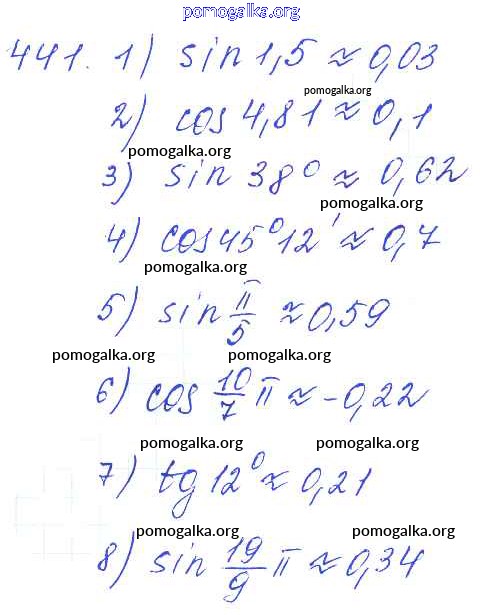 pomogalka.org
441. 1) sin 1,5 ≈ 0,03
pomogalka.org
2) cos 4,81 ≈ 0,1
pomogalka.org
3) sin 38° ≈ 0,62
pomogalka.org
4) cos 45°12' ≈ 0,7
pomogalka.org
5) sin π/5 ≈ 0,59
pomogalka.org pomogalka.org
6) cos 10/7 π ≈ -0,22
pomogalka.org pomogalka.org
7) tg 12° ≈ 0,21
pomogalka.org pomogalka.org
8) sin 19/9 π ≈ 0,34